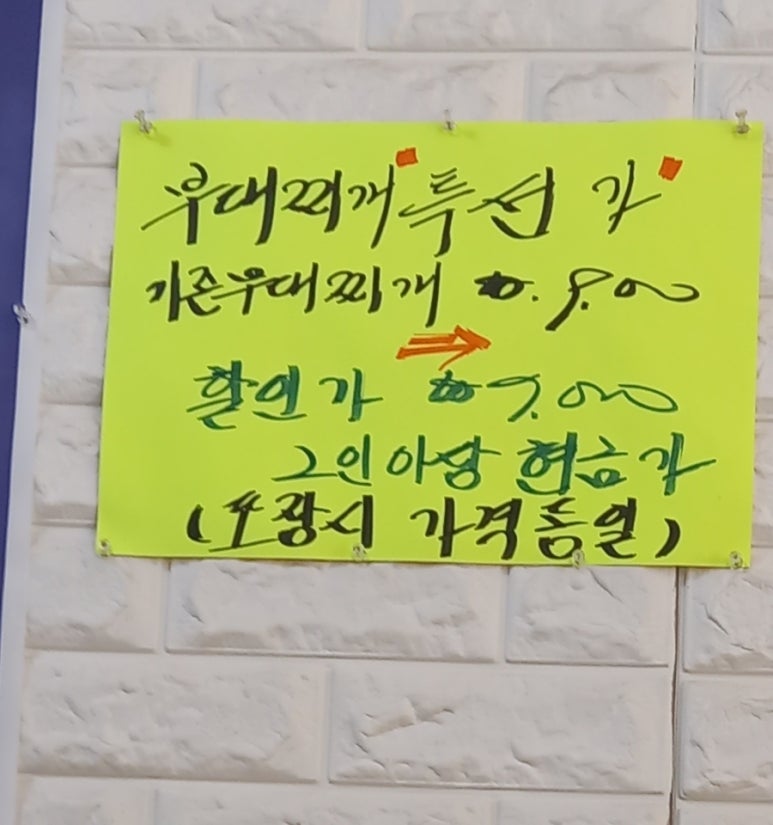 부대찌개 특선 가
기존부대찌개 ₩. 9.000
할인가 ₩ 7.000
2인 이상 현금가
(포장시 가격동일)